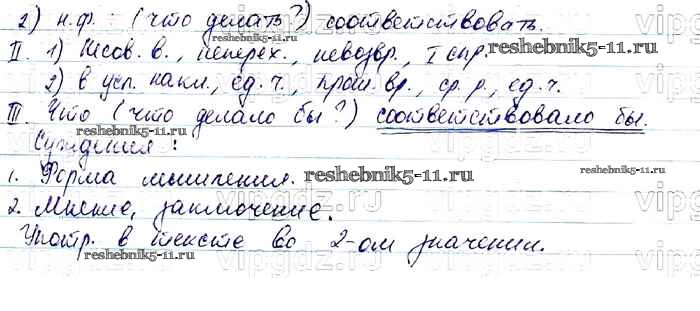 2) н.ф. : (что делать?) соответствовать.
II. 1) Несов. в., неперех., невозвр., I спр.
reshebnik5-11.ru
2) в усл. накл., ед. ч., прош. вр., ср. р., ед. ч.
III. Что (что делало бы?) соответствовало бы.
reshebnik5-11.ru
Суждения:
reshebnik5-11.ru
1. Форма мышления.
2. Мнение, заключение.
reshebnik5-11.ru
Употр. в тексте во 2-ом значении.
reshebnik5-11.ru
vipgdz.ru